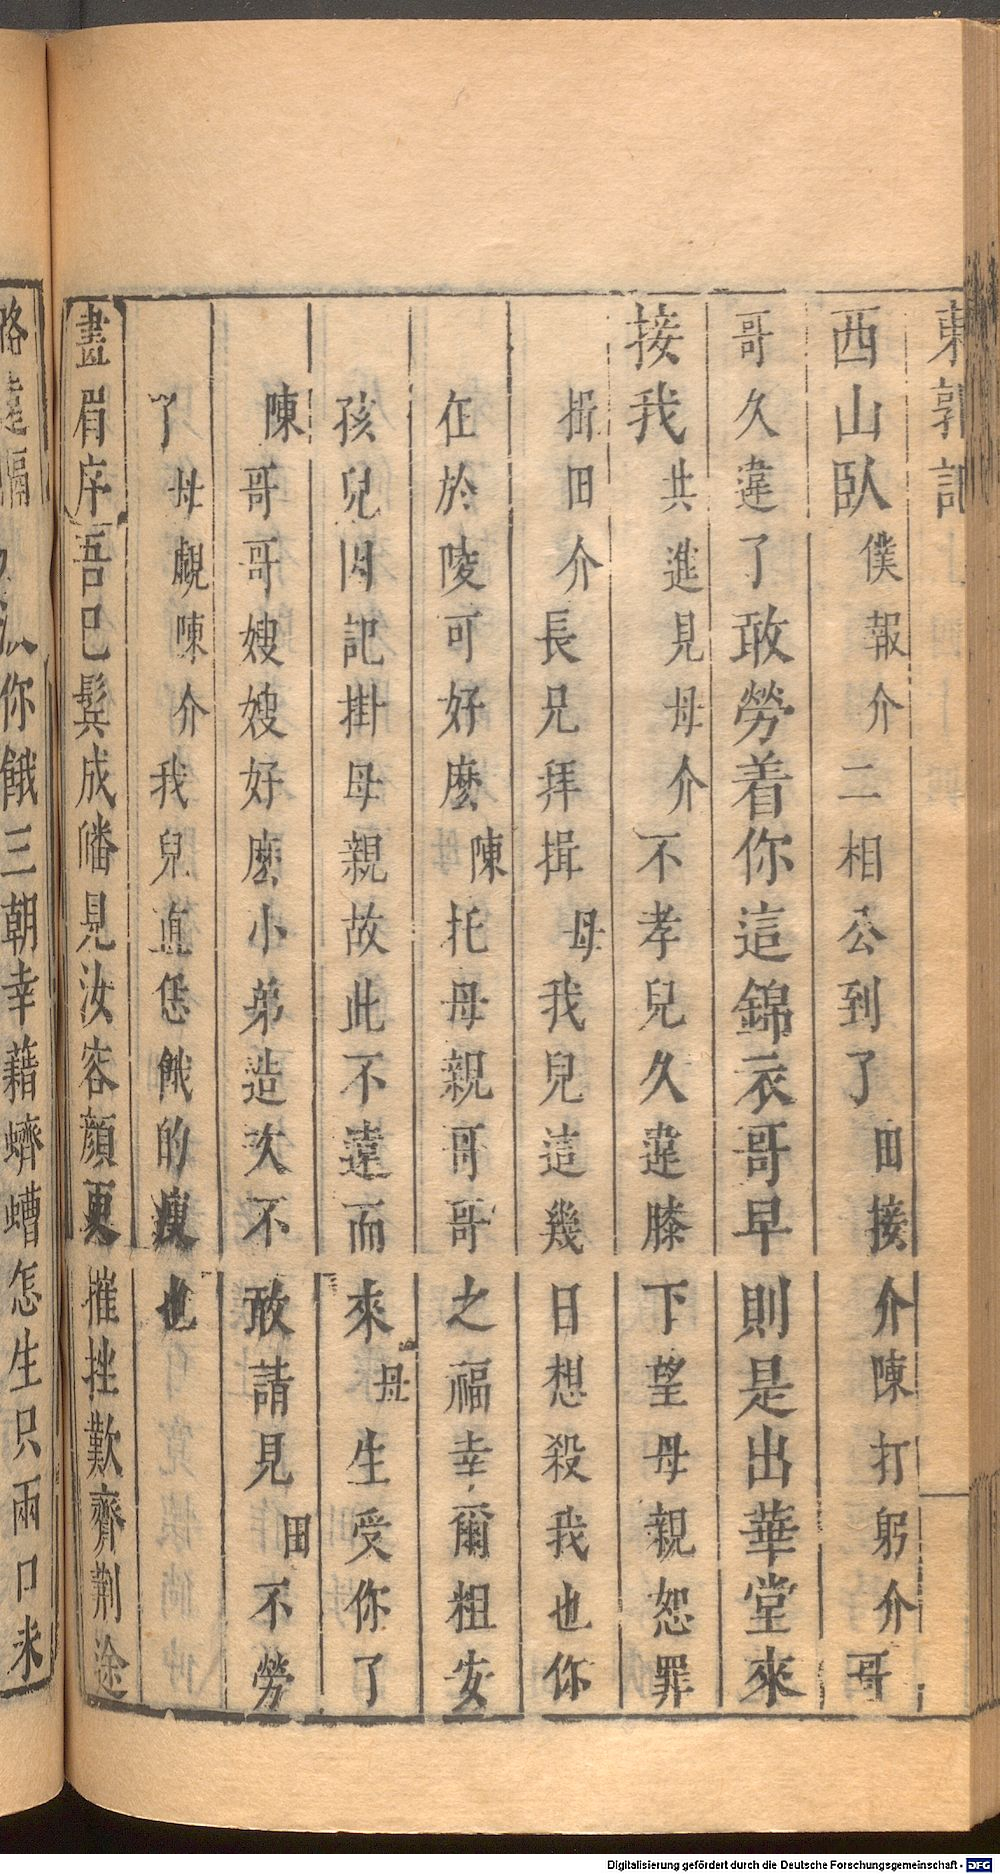 東郭記
西山臥僕報介二相公到了田接介陳打躬介哥
哥久違了敢勞着你這錦衣哥早則是出華堂來
接我共進見母介不孝兒久違膝下望母親恕罪
揖田介長兄拜揖母我兒這幾日想殺我也你
在於陵可好麼陳托母親哥哥之福幸爾粗安
孩兒因記掛母親故此不遠而來母生受你了
陳哥哥嫂嫂好麼小弟造次不敢請見田不勞
了母覷陳介我兒直恁餓的瘦也
畫眉序吾已鬂成皤見汝容顏更摧挫歎齊荆途
路遠隔你餓三朝幸藉蠐螬怎生只兩口未
Digitalisierung gefördert durch die Deutsche Forschungsgemeinschaft - DFG